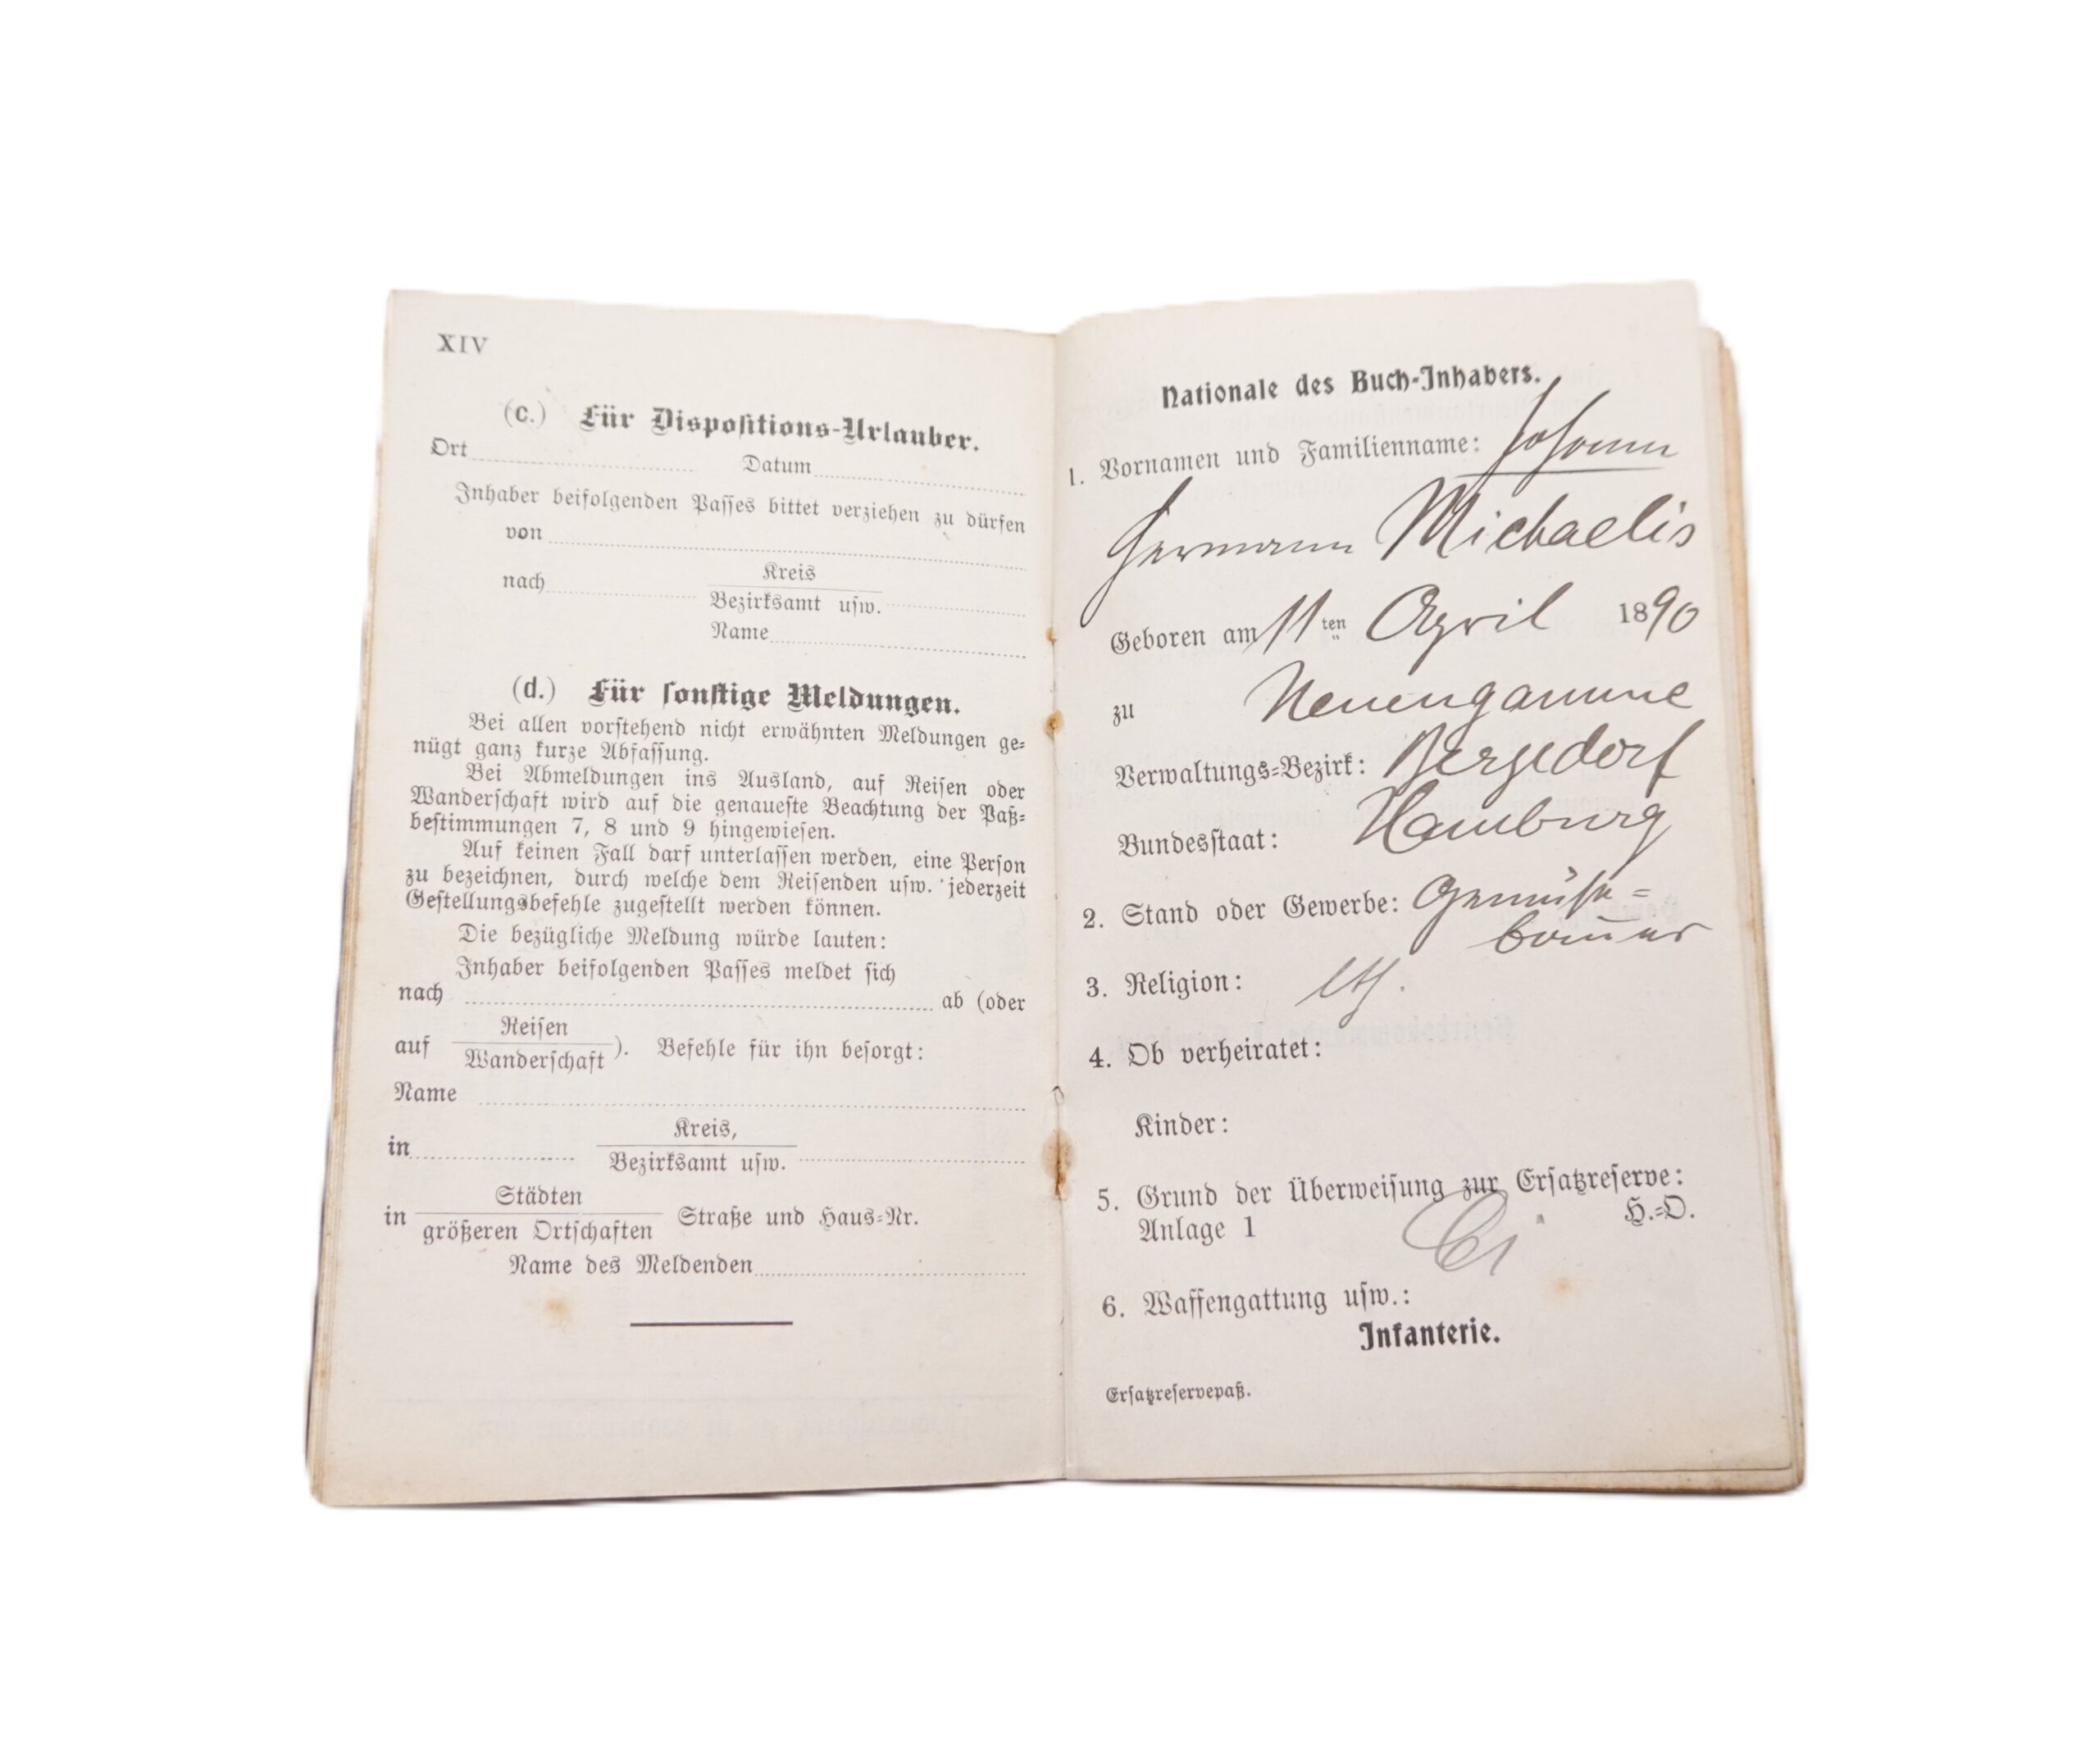 XIV
(c.) Für Dispoſitions-Urlauber.
Ort Datum
Inhaber beifolgenden Paſſes bittet verziehen zu dürfen
von
nach Kreis
Bezirksamt uſw.
Name
(d.) Für ſonſtige Meldungen.
Bei allen vorſtehend nicht erwähnten Meldungen ge-
nügt ganz kurze Abfaſſung.
Bei Abmeldungen ins Ausland, auf Reiſen oder
Wanderſchaft wird auf die genaueſte Beachtung der Paß-
beſtimmungen 7, 8 und 9 hingewieſen.
Auf keinen Fall darf unterlaſſen werden, eine Perſon
zu bezeichnen, durch welche dem Reiſenden uſw. jederzeit
Geſtellungsbefehle zugeſtellt werden können.
Die bezügliche Meldung würde lauten:
Inhaber beifolgenden Paſſes meldet ſich
nach ab (oder
auf Reiſen
Wanderſchaft). Befehle für ihn beſorgt:
Name
in Kreis,
Bezirksamt uſw.
in Städten
größeren Ortſchaften Straße und Haus-Nr.
Name des Meldenden
Nationale des Buch-Inhabers.
1. Vornamen und Familienname: Johann
Hermann Michaelis
Geboren am 11ten April 1890
zu Neuengamme
Verwaltungs-Bezirk: Bergedorf
Bundesſtaat: Hamburg
2. Stand oder Gewerbe: Gemüse-
bauer
3. Religion:
4. Ob verheiratet:
Kinder:
5. Grund der Überweiſung zur Erſatzreſerve:
Anlage 1 H.-O.
6. Waffengattung uſw.:
Infanterie.
Erſatzreſervepaß.